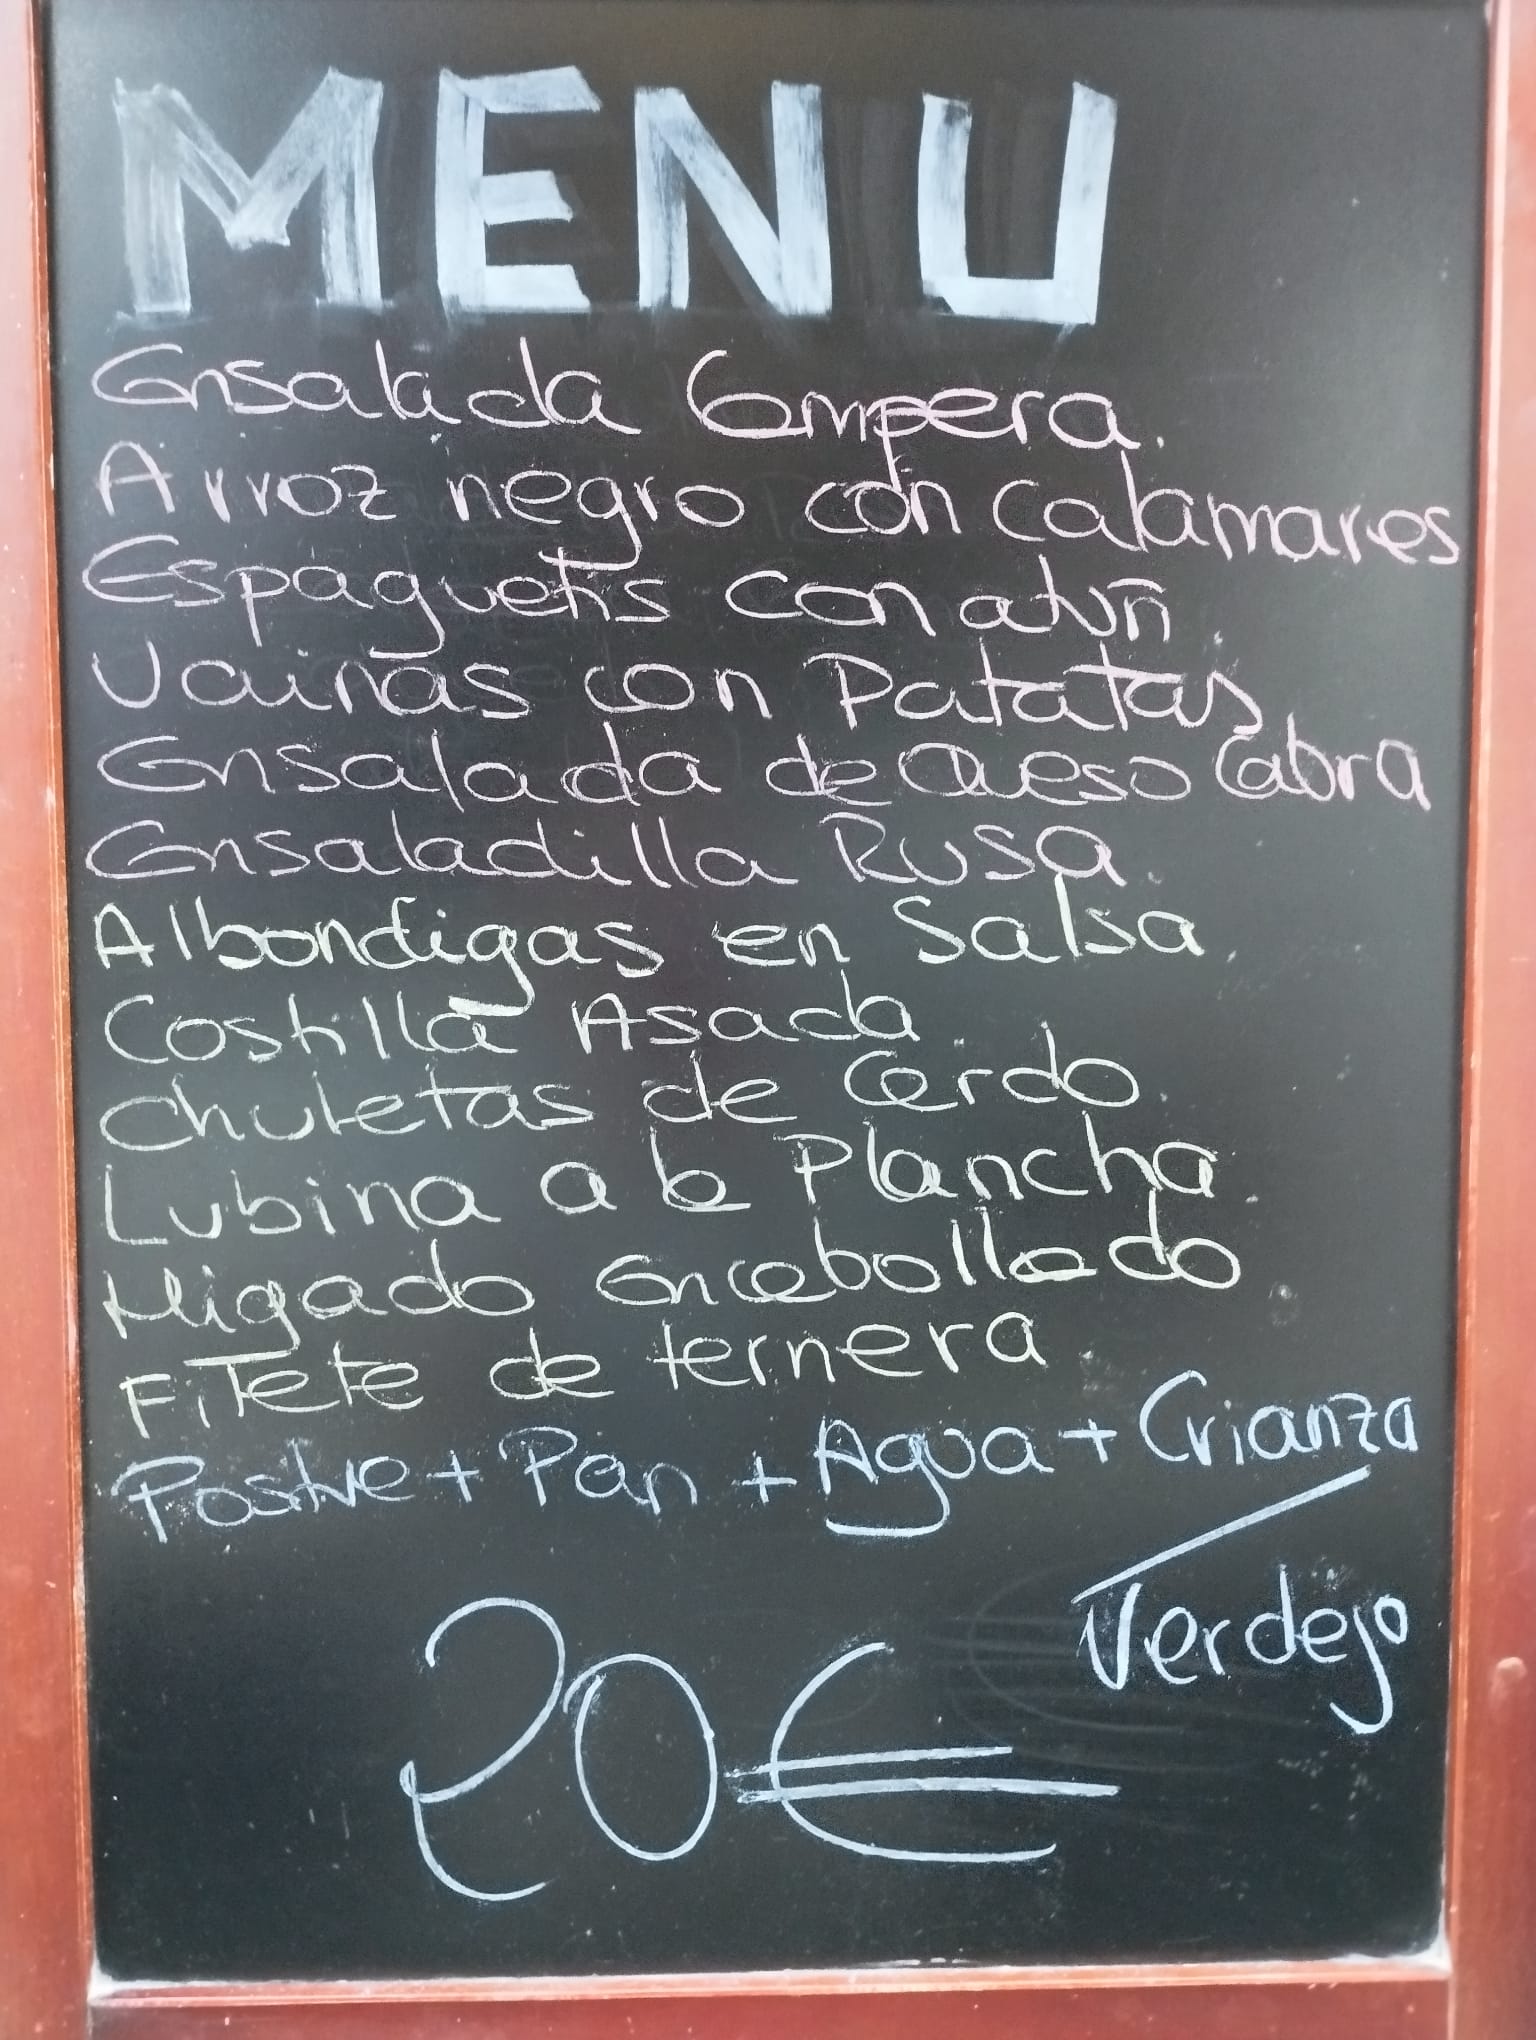 MENU
Ensalada Campera.
Arroz negro con calamares
Espaguetis con atún
Vainas con Patatas
Ensalada de Queso Cabra
Ensaladilla Rusa
Albondigas en Salsa
Costilla Asada
Chuletas de Cerdo
Lubina a la Plancha
Higado Encebollado
Filete de ternera
Postre + Pan + Agua + Crianza
/ Verdejo
20€